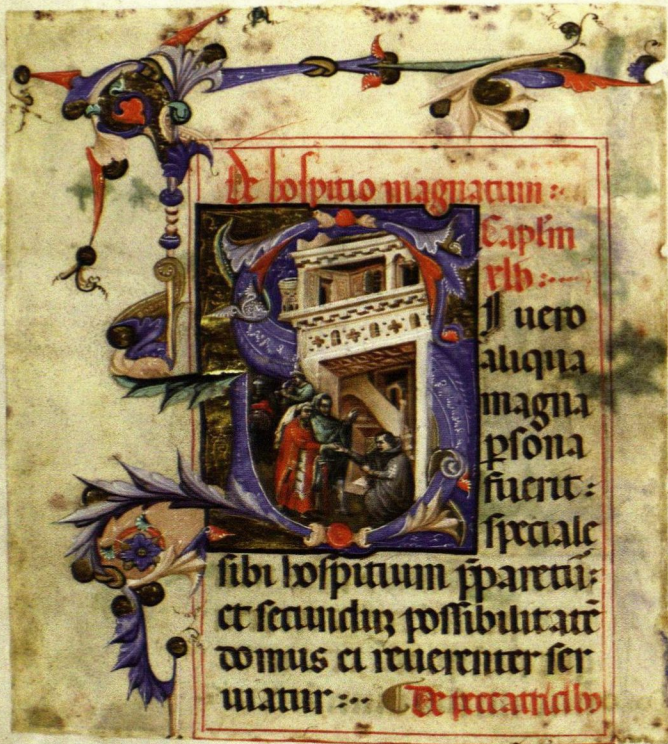 De hospitio magnatum :
Caplm
xlv :
S I uero
aliqua
magna
psona
fuerit :
speciale
sibi hospitium pparetur :
et secunduz possibilitatē
domus ei reuerenter ser
uiatur : De peccatricibȝ